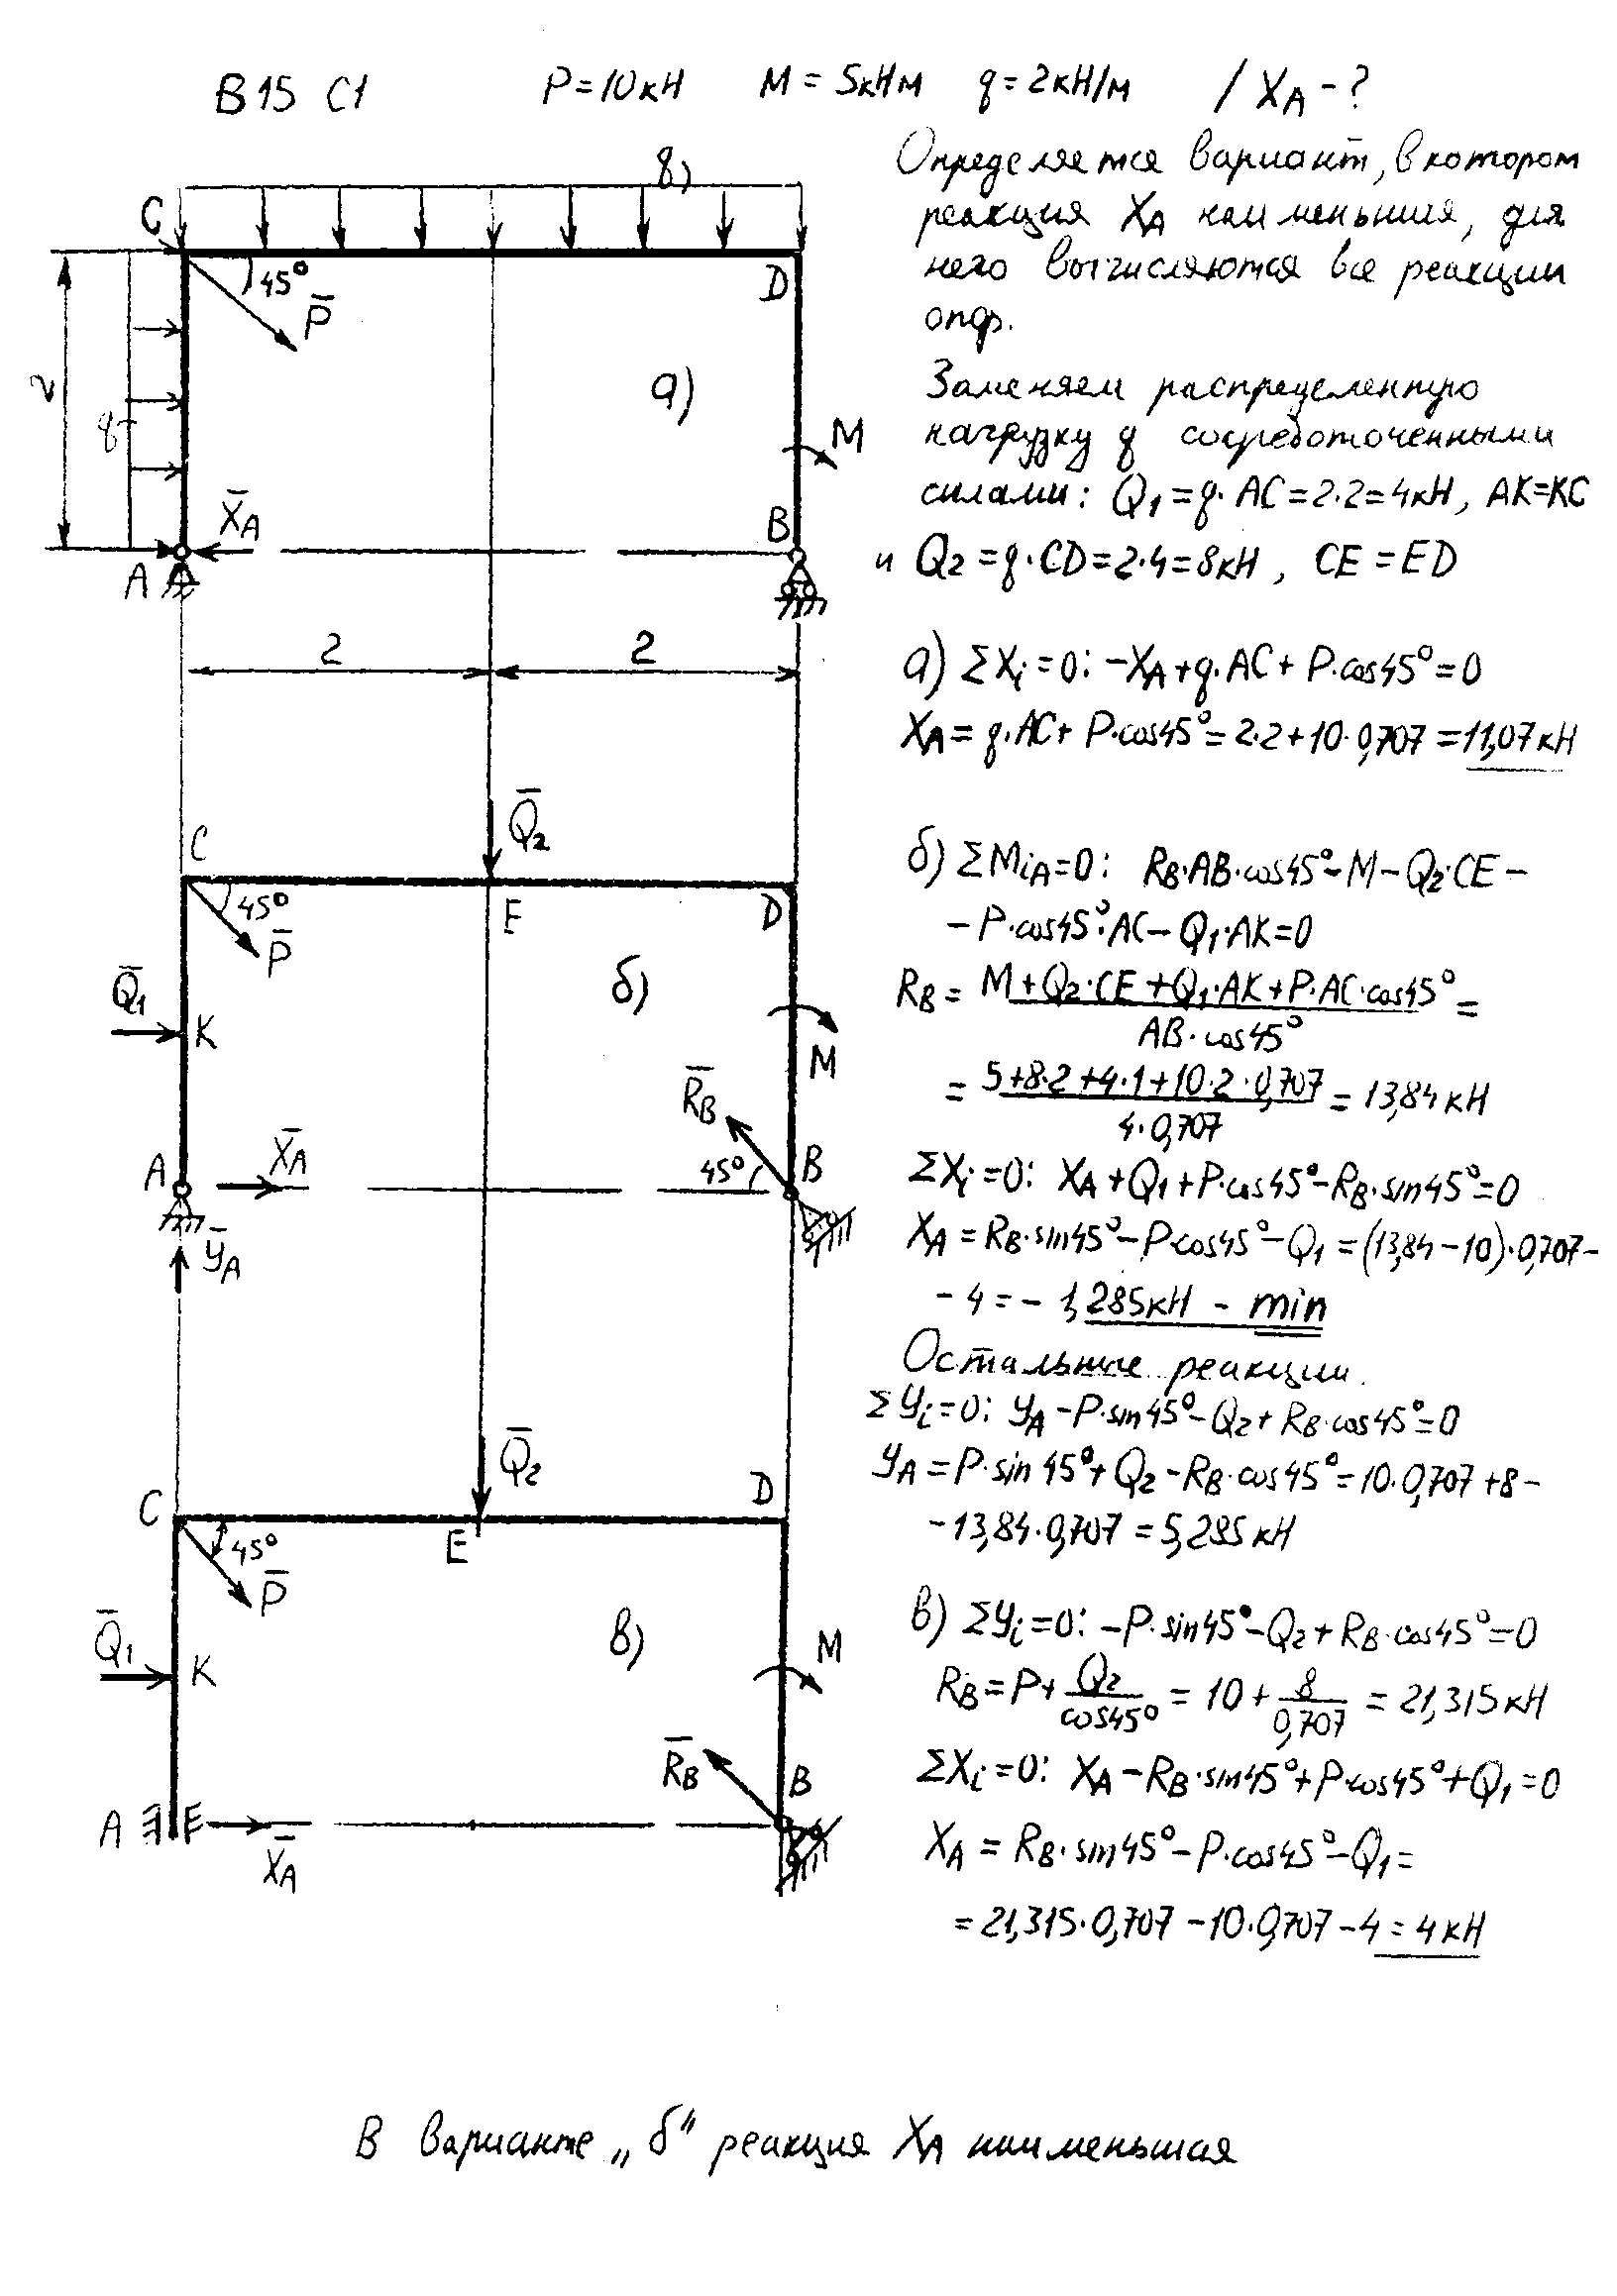 В15 С1 P=10кН M=5кНм q=2кН/м / X_A-?
Определяется вариант, в котором
реакция X_A наименьшая, для
него вычисляются все реакции
опор.
Заменяем распределенную
нагрузку q сосредоточенными
силами: Q₁=q·AC=2·2=4кН, AK=KC
и Q₂=q·CD=2·4=8кН, CE=ED
C
45°
P̄
D
а)
M
2
q
X̄_A
A
B
2
2
а) ΣXᵢ=0: -X_A+q·AC+P·cos45°=0
X_A=q·AC+P·cos45°=2·2+10·0,707=11,07кН
Q̄₂
C
45°
P̄
E
D
б)
Q̄₁
K
M
R̄_B
45°
B
A
X̄_A
Ȳ_A
б) ΣMᵢA=0: R_B·AB·cos45°-M-Q₂·CE-
-P·cos45°·AC-Q₁·AK=0
R_B=(M+Q₂·CE+Q₁·AK+P·AC·cos45°)/(AB·cos45°)=
=(5+8·2+4·1+10·2·0,707)/(4·0,707)=13,84кН
ΣXᵢ=0: X_A+Q₁+P·cos45°-R_B·sin45°=0
X_A=R_B·sin45°-P·cos45°-Q₁=(13,84-10)·0,707-
-4=-1,285кН - min
Остальные реакции.
ΣYᵢ=0: Y_A-P·sin45°-Q₂+R_B·cos45°=0
Y_A=P·sin45°+Q₂-R_B·cos45°=10·0,707+8-
-13,84·0,707=5,285кН
Q̄₂
C
45°
P̄
E
D
в)
Q̄₁
K
M
R̄_B
B
A
X̄_A
в) ΣYᵢ=0: -P·sin45°-Q₂+R_B·cos45°=0
R_B=P+Q₂/cos45°=10+8/0,707=21,315кН
ΣXᵢ=0: X_A-R_B·sin45°+P·cos45°+Q₁=0
X_A=R_B·sin45°-P·cos45°-Q₁=
=21,315·0,707-10·0,707-4=4кН
В варианте „б" реакция X_A наименьшая